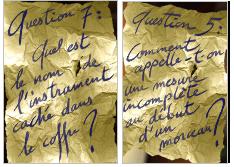 Question 7:
Quel est
le nom de
l'instrument
caché dans
le coffre?
Question 5:
Comment
appelle-t-on
une mesure
incomplète
au début
d'un
morceau?